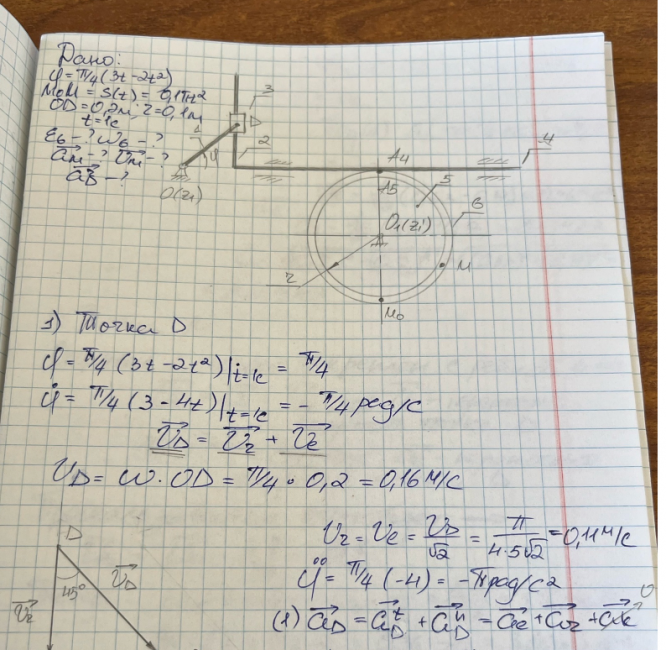 Дано:
φ = π/4 (3t - 2t²)
M₀M = S(t) = 0,1πt²
OD = 0,2м; r = 0,1м
t = 1c
ε₆ - ? ω₆ - ?
a⃗м - ? v⃗м - ?
3
D
1
φ
2
O(z₁)
A₄
4
A₅
5
6
O₁(z₁')
M
r
M₀
1) Точка D
φ = π/4 (3t - 2t²)|t=1c = π/4
φ̇ = π/4 (3 - 4t)|t=1c = - π/4 рад/с
V⃗D = V⃗r + V⃗e
VD = ω · OD = π/4 · 0,2 = 0,16 м/с
Vr = Ve = VD/√2 = π/(4·5√2) = 0,11 м/с
D
V⃗D
45°
V⃗r
φ̈ = π/4 (-4) = -π рад/с²
(1) a⃗D = a⃗Dᵗ + a⃗Dⁿ = a⃗e + a⃗r + a⃗c 0